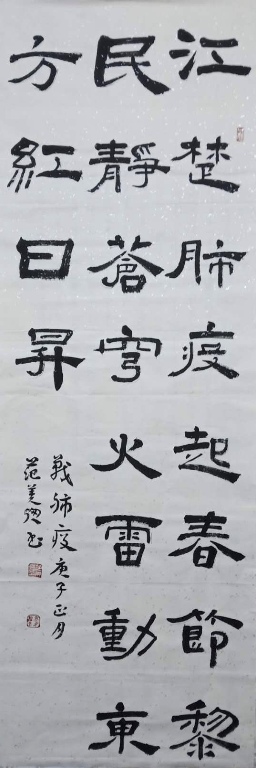 江楚肺疫起春節黎
民靜蒼穹火雷動東
方紅日昇
戰肺疫庚子正月
范美璁书